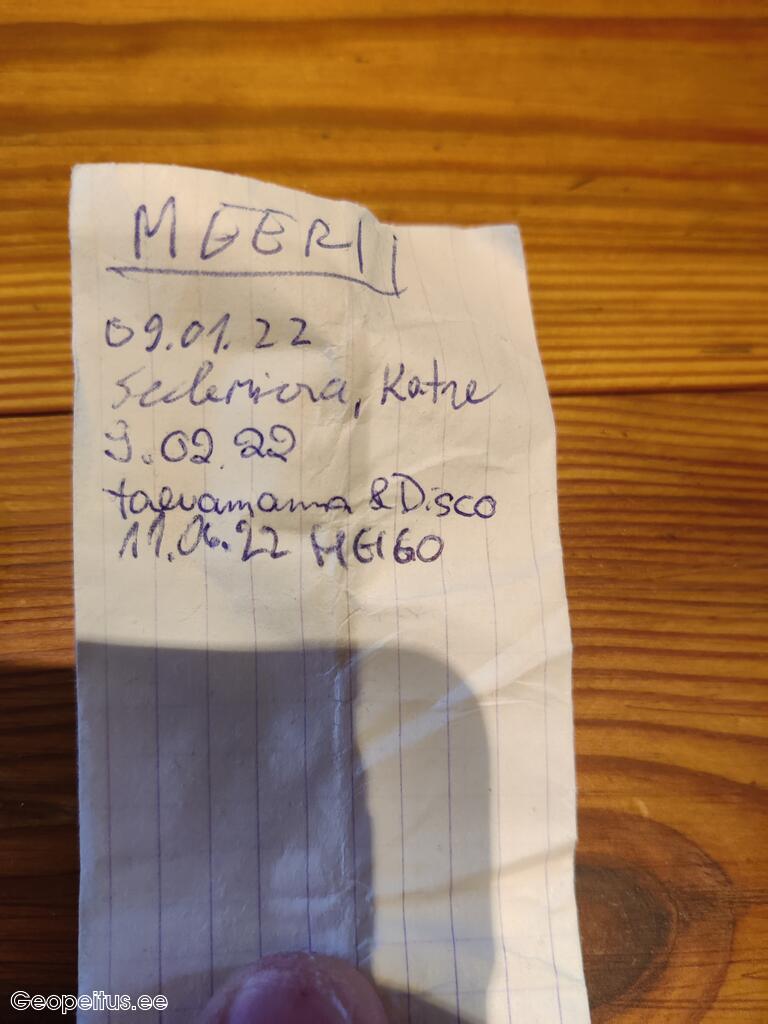 MEERI
09.01.22
Katze
9.02.22
taevamama & Disco
11.06.22 HEIGO
Geopeitus.ee